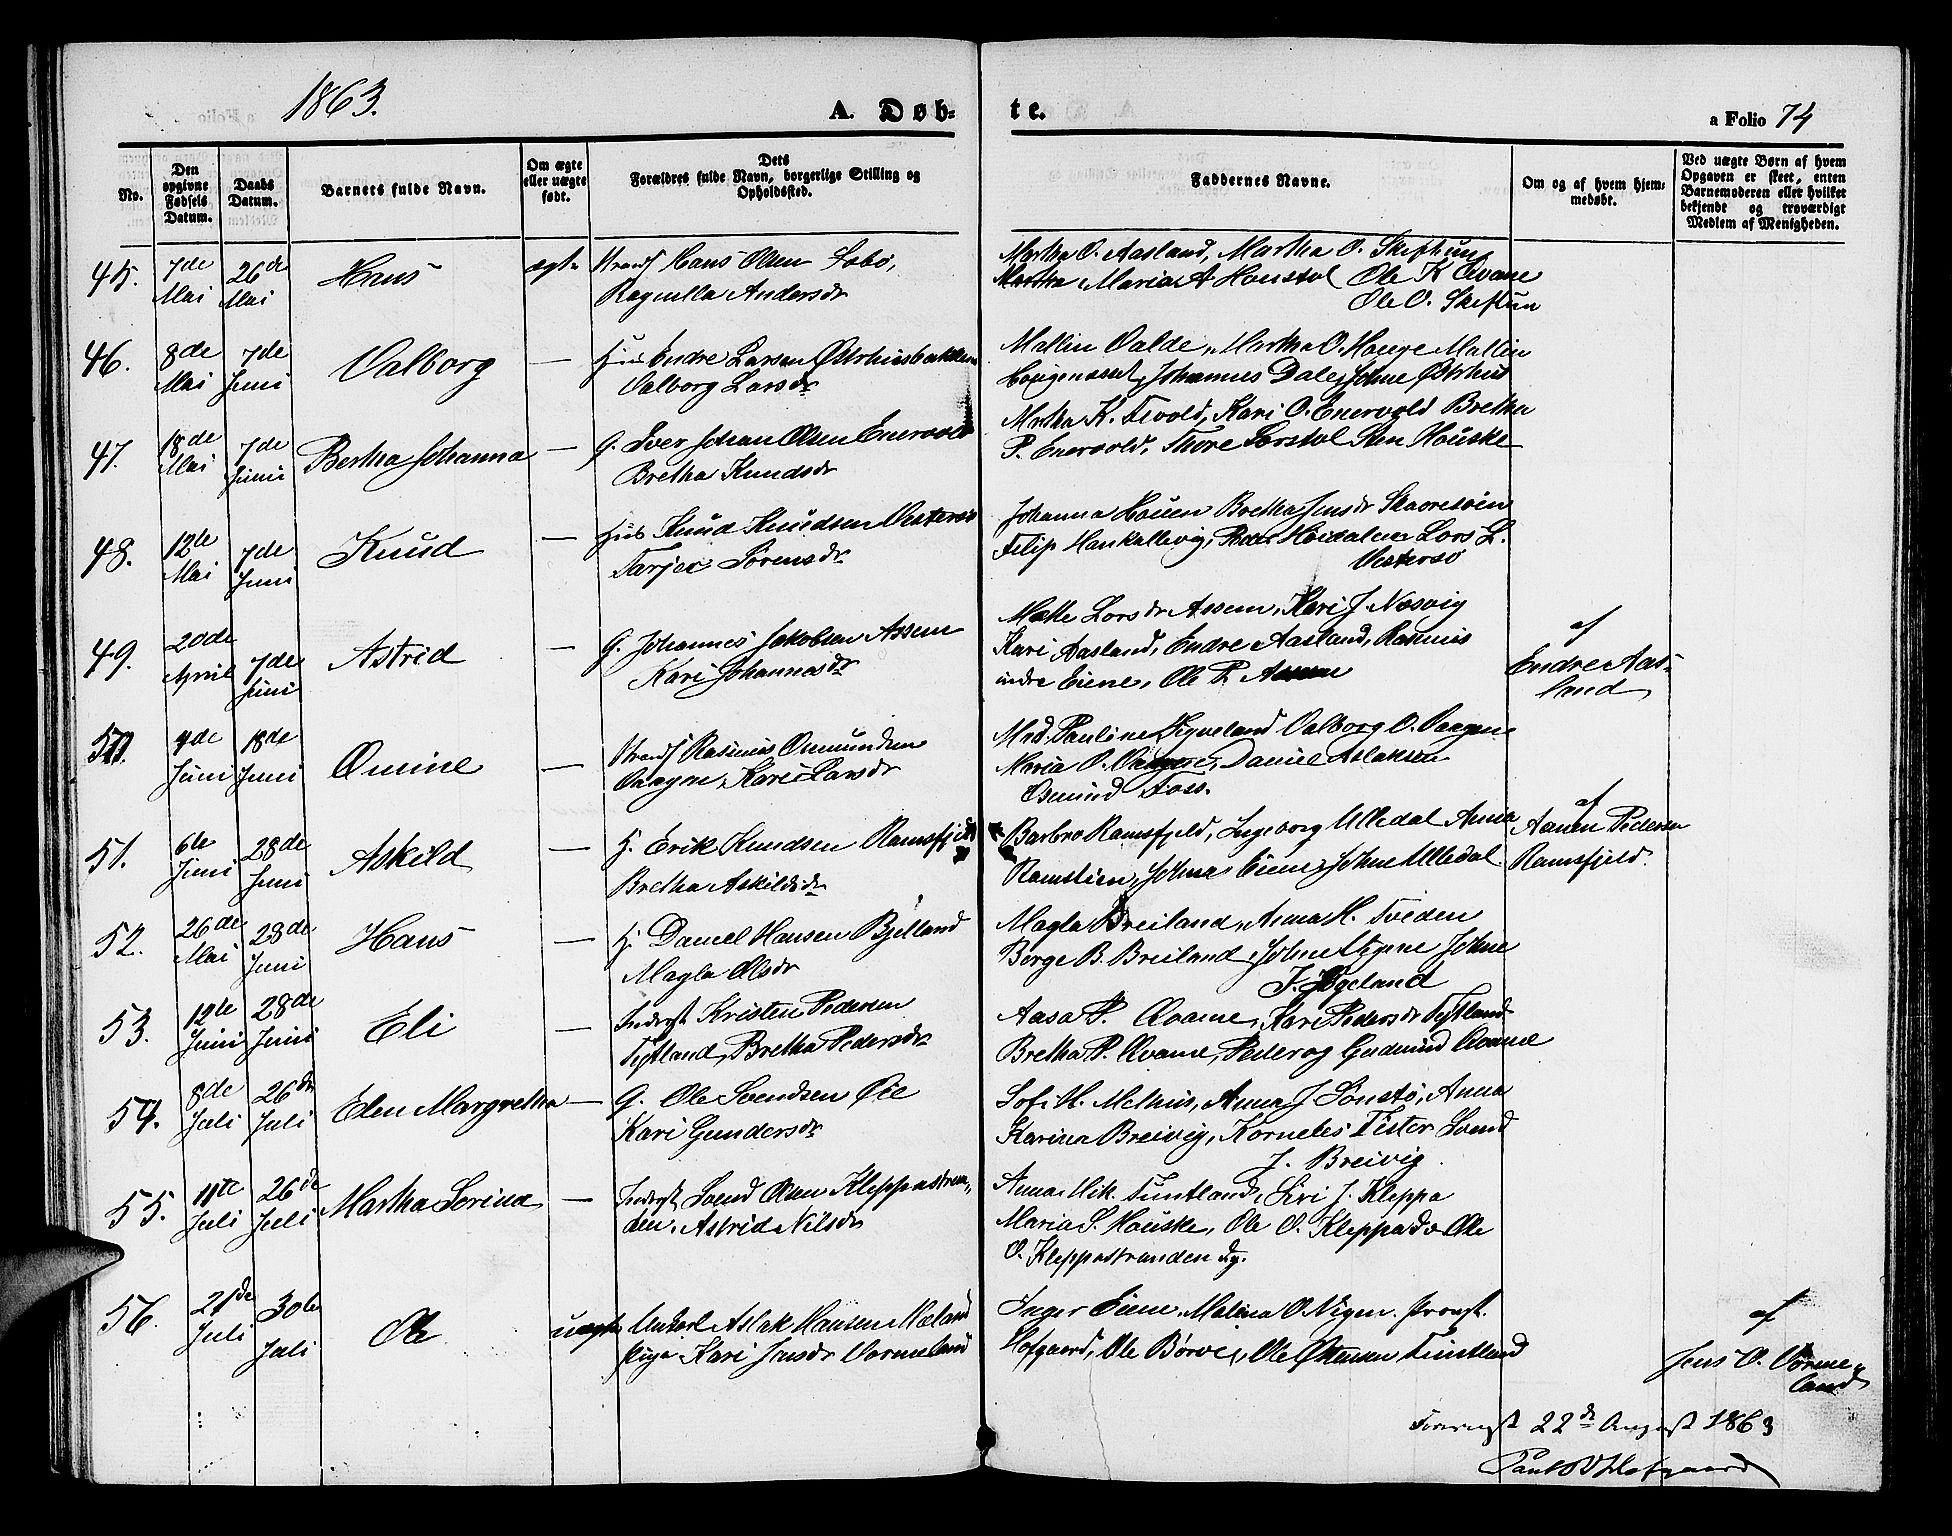 1863.
A. Døb-
te.
a Folio 74
No.
Den opgivne Fødsels Datum.
Daabs Datum.
Barnets fulde Navn.
Om ægte eller uægte født.
Dets Forældres fulde Navn, borgerlige Stilling og Opholdssted.
Faddernes Navne.
Om og af hvem hjemmedøbt.
Ved uægte Børn af hvem Opgaven er skeet, enten Barnemoderen eller hvilket bekjendt og troværdigt Medlem af Menigheden.
45. 7de Mai 26de Mai Hans ægte
Strands Hans Olsen Sabø,
Ragnilla Andersdr
Martha O. Aasland, Martha O. Skiftun
Martha Maria A Houstol Ole K Qvame
Ole O. Skiftun
46. 8de Mai 7de Juni Valborg —
Huus Endre Larsen Østhusbakken
Valborg Larsdr
Mallin Valde, Martha O. Houge Mallin
Johannes Dale, Johne Østhus
47. 18de Mai 7de Juni Bertha Johanna —
G. Iver Johan Olsen Enervold
Bretha Knudsdr
Martha K. Tvold, Kari O. Enervold Bretha
P. Enervold, Thore Sorstol Houske
48. 12te Mai 7de Juni Knud —
Huus Knud Knudsen Vestersø
Tarjer Sørensdr
Johanna Houen Bretha Jensdr
Filip Hankallevig, Peder Heidalen Lars L.
Vestersø
49. 20de April 7de Juni Astrid —
G. Johannes Jakobsen Assem
Kari Johannesdr
Mætte Larsdr Assem, Kari J. Næsvig
Kari Aasland, Endre Aasland, Rasmus
indre Eiene, Ole P. Assem
af
Endre Aas-
land
50. 4de Juni 18de Juni Omine —
Strands Rasmus Osmundsen
Vaagen, Kari Larsdr
Mad. Pauline Vigveland Valborg O. Vaagen
Maria O. Vaagen, Daniel Aslaksen
Osmund Foss.
51. 6te Juni 28de Juni Askild —
H. Erik Knudsen Ramsfjeld
Bretha Askildsdr
Barbro Ramsfjeld, Ingeborg Ulledal Anna
Ramstien, Johna Eiene, Johne Ulledal
af
Aanen Pedersen
Ramsfjeld.
52. 26de Mai 28de Juni Hans —
H. Daniel Hansen Bjelland
Magla Olsdr
Magla Breiland, Anna H. Tveden
Børge B. Breiland, Johne Johne
J. Jøgeland
53. 12te Juni 28de Juni Eli —
Inderst Kristen Pedersen
Tytland, Bretha Pedersdr
Aasa P. Qvame, Kari Pedersdr Tytland
Bretha P. Qvame, Peder og Gudmund Qvame
54. 8de Juli 26de Juli Elen Margretha —
G. Ole Svendsen Øie
Kari Gundersdr
Sofi H. Melhus, Anna J Sønstø, Anna
Karina Breivig, Kornelius Tister Svend
J. Breivig
55. 11te Juli 26de Juli Martha Serina —
Inderst Svend Olsen Kleppastran-
den, Astrid Nilsdr
Anna Mik. Tuntland, Siri J. Kleppa
Maria S. Houske, Ole O. Kleppa do Ole
O. Kleppastranden dy.
56. 21de Juli 30te Juli Ole uægte
Unkarl Aslak Hansen Mæland
pige Kari Jensdr Vormeland
Inger Eiene, Malina O. Vigen. Provst.
Hofgaard, Ole Børvig, Ole Østensen Tuntland
af
Jens O. Vorme-
land
22de August 1863
Hofgaard